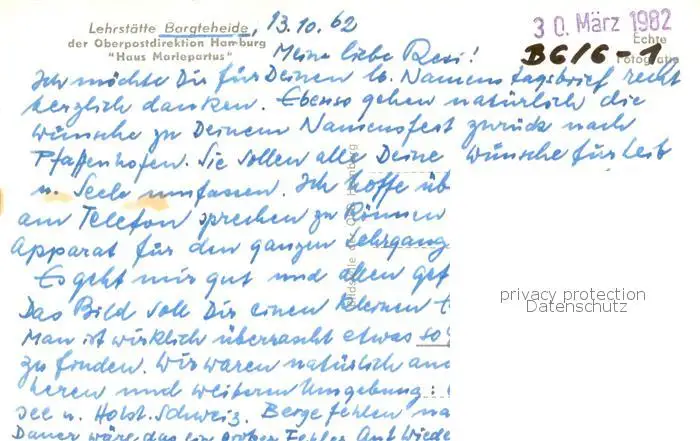 Lehrstätte Bargteheide, 13.10.62
der Oberpostdirektion Hamburg
"Haus Mariepartus"
30. März 1982
Echte
Fotografie
B6/6-1
Meine liebe Resi!
Ich möchte Dir für Deinen lb. Namenstagsbrief recht
herzlich danken. Ebenso gehen natürlich die
wünsche zu Deinem Namensfest zurück nach
Pfaffenhofen. Sie sollen alle Deine wünsche für Leib
u. Seele umfassen. Ich hoffe üb
am Telefon sprechen zu können
Apparat für den ganzen Lehrgang
Es geht mir gut und allen gef
Das Bild soll Dir einen kleinen
Man ist wirklich überrascht etwas so
zu finden. Wir waren natürlich auc
heren und weiteren Umgebung:
see u. Holst. Schweiz. Berge fehlen na
Dauer wäre das ein großer Fehler. Auf Wiede
Bildstelle der OPD Hamburg
privacy protection
Datenschutz